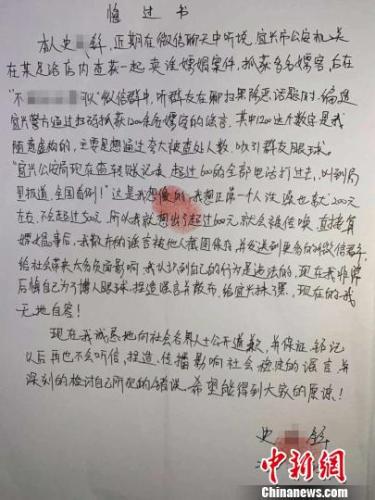 悔过书
本人史 辉,近期在微信聊天中听说,宜兴市公安机关
在某足浴店内查获一起卖淫嫖娼案件,抓获多名嫖客,后在
"不 队"微信群中,听群友在聊扫黑除恶话题时,编造
宜兴警方通过扫码抓获1200余名嫖客的谣言。其中1200这个数字是我
随意虚构的,主要是想通过夸大被查处人数,吸引群友眼球。
"宜兴公安局现在查转账记录,超过600的全部电话打过去,叫到局
里报道,全国首例!"这是我想像的,我想正常一个人洗澡也就200元
左右,不会超过500元,所以我就想出了超过600元就会被传唤,直接有
嫖娼事后,我散布的谣言被他人截图保存,并发送到更多的微信群中,
给社会带来大多负面影响,我认识到自己的行为是违法的,现在我非常
后悔自己为了博人眼球,捏造谣言并散布,给宜兴抹了黑,现在的我
无地自容!
现在我诚恳地向社会各界人士公开道歉,并保证铭记
以后再也不会听信、捏造、传播影响社会稳定的谣言,并
深刻的检讨自己所犯的错误,希望能得到大家的原谅!
史 辉
中新网
Chinanews.com